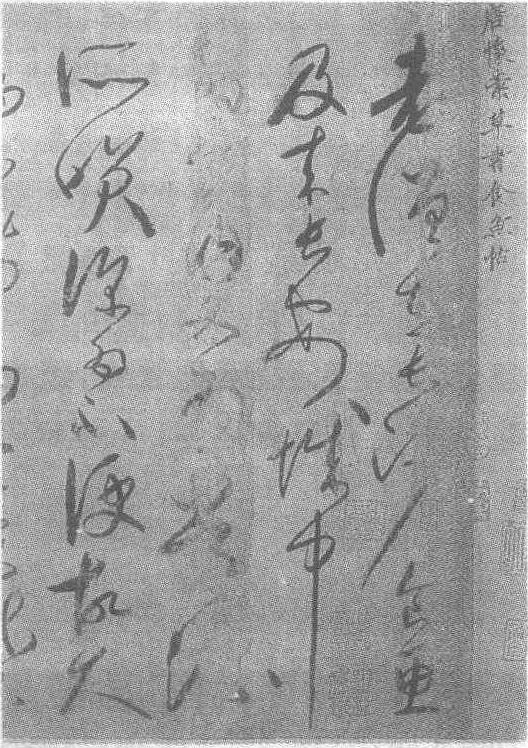 唐懷素草書食魚帖
老僧在長沙食魚
及來長安城中
肉又為常流
所笑深為不便故久